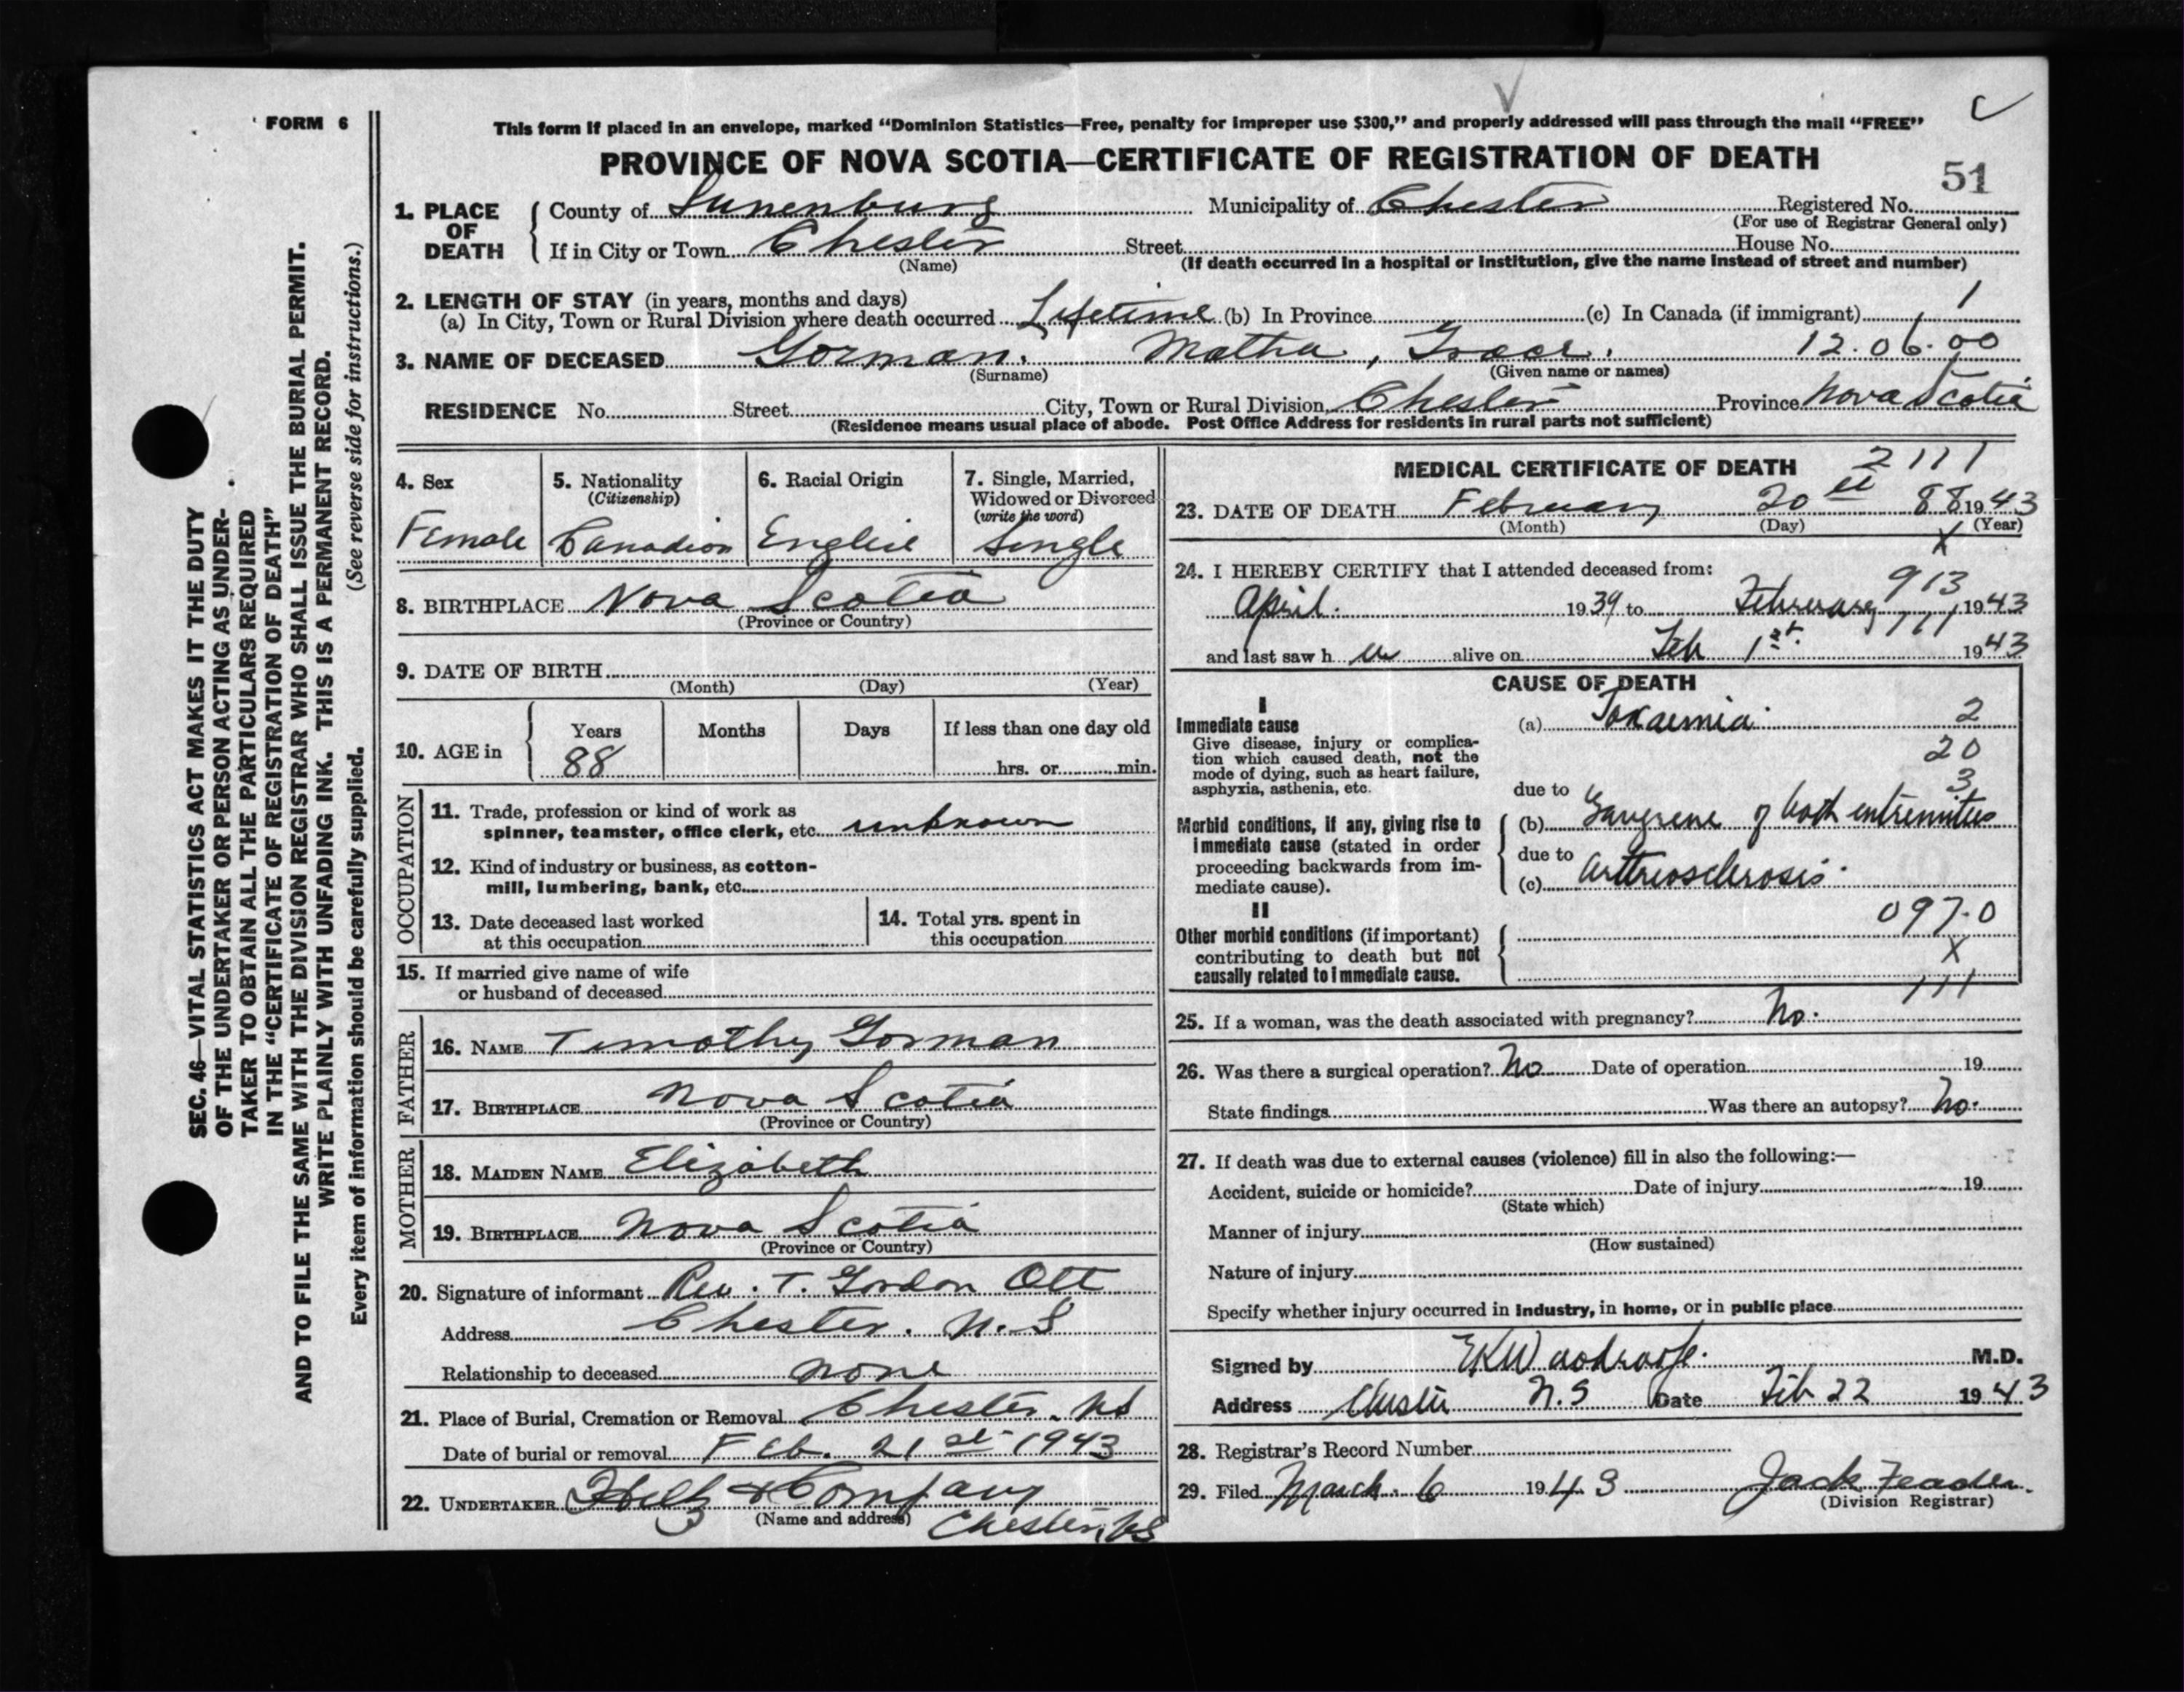 FORM 6
This form if placed in an envelope, marked “Dominion Statistics—Free, penalty for improper use $300,” and properly addressed will pass through the mail “FREE”
PROVINCE OF NOVA SCOTIA—CERTIFICATE OF REGISTRATION OF DEATH
51
1. PLACE OF DEATH
County of Lunenburg Municipality of Chester Registered No.
(For use of Registrar General only)
If in City or Town Chester Street House No.
(Name) (If death occurred in a hospital or institution, give the name instead of street and number)
2. LENGTH OF STAY (in years, months and days)
(a) In City, Town or Rural Division where death occurred Lifetime (b) In Province (c) In Canada (if immigrant) 1
3. NAME OF DECEASED Gorman. Matha, Grace. 12.06.00
(Surname) (Given name or names)
RESIDENCE No. Street City, Town or Rural Division Chester Province Nova Scotia
(Residence means usual place of abode. Post Office Address for residents in rural parts not sufficient)
4. Sex
Female
5. Nationality
(Citizenship)
Canadian
6. Racial Origin
English
7. Single, Married,
Widowed or Divorced
(write the word)
Single
8. BIRTHPLACE Nova Scotia
(Province or Country)
9. DATE OF BIRTH
(Month) (Day) (Year)
10. AGE in
Years Months Days If less than one day old
88 hrs. or min.
OCCUPATION
11. Trade, profession or kind of work as
spinner, teamster, office clerk, etc. unknown
12. Kind of industry or business, as cotton-
mill, lumbering, bank, etc.
13. Date deceased last worked
at this occupation
14. Total yrs. spent in
this occupation
15. If married give name of wife
or husband of deceased
FATHER
16. NAME Timothy Gorman
17. BIRTHPLACE Nova Scotia
(Province or Country)
MOTHER
18. MAIDEN NAME Elizabeth
19. BIRTHPLACE Nova Scotia
(Province or Country)
20. Signature of informant Rev. T. Gordon Ott
Address Chester. N.S
Relationship to deceased none
21. Place of Burial, Cremation or Removal Chester. NS
Date of burial or removal Feb. 21st 1943
22. UNDERTAKER & Company
(Name and address) Chester, NS
MEDICAL CERTIFICATE OF DEATH 2111
23. DATE OF DEATH February 20th 88 1943
(Month) (Day) (Year)
X
24. I HEREBY CERTIFY that I attended deceased from:
913
April. 1939 to February 1943
111
and last saw h er alive on Feb 1st. 1943
CAUSE OF DEATH
I
Immediate cause
Give disease, injury or complica-
tion which caused death, not the
mode of dying, such as heart failure,
asphyxia, asthenia, etc.
(a) Toxaemia 2
20
3
due to
Morbid conditions, if any, giving rise to
immediate cause (stated in order
proceeding backwards from im-
mediate cause).
(b) Gangrene of both extremities
due to
(c) arteriosclerosis.
II
097.0
Other morbid conditions (if important)
contributing to death but not
causally related to immediate cause.
X
111
25. If a woman, was the death associated with pregnancy? No.
26. Was there a surgical operation? No Date of operation 19
State findings Was there an autopsy? No.
27. If death was due to external causes (violence) fill in also the following:—
Accident, suicide or homicide? Date of injury 19
(State which)
Manner of injury
(How sustained)
Nature of injury
Specify whether injury occurred in industry, in home, or in public place
Signed by M.D.
Address Chester N.S Date Feb 22 1943
28. Registrar's Record Number
29. Filed March. 6 1943 Jack Feader.
(Division Registrar)
SEC. 46—VITAL STATISTICS ACT MAKES IT THE DUTY
OF THE UNDERTAKER OR PERSON ACTING AS UNDER-
TAKER TO OBTAIN ALL THE PARTICULARS REQUIRED
IN THE “CERTIFICATE OF REGISTRATION OF DEATH”
AND TO FILE THE SAME WITH THE DIVISION REGISTRAR WHO SHALL ISSUE THE BURIAL PERMIT.
WRITE PLAINLY WITH UNFADING INK. THIS IS A PERMANENT RECORD.
Every item of information should be carefully supplied. (See reverse side for instructions.)